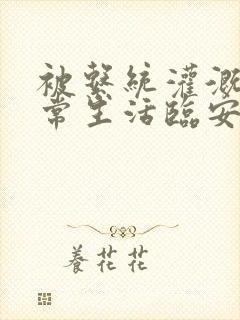 被繫統灌溉
常生活臨安
養花花